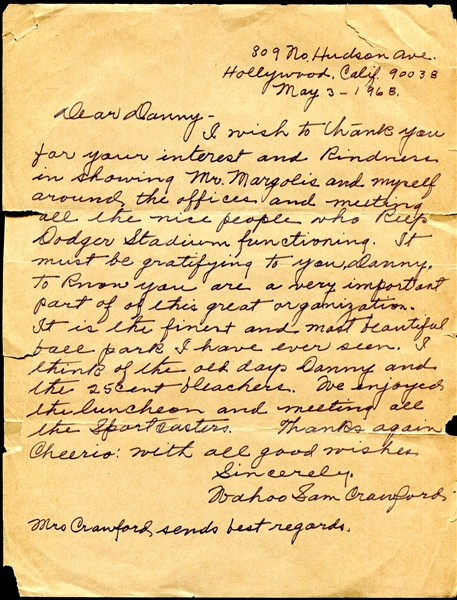 809 No. Hudson Ave.
Hollywood, Calif. 90038
May 3 - 1968.
Dear Danny -
I wish to thank you
for your interest and kindness
in showing Mr. Margolis and myself
around the offices and meeting
all the nice people who keep
Dodger Stadium functioning. It
must be gratifying to you, Danny,
to know you are a very important
part of of this great organization.
It is the finest and most beautiful
ball park I have ever seen. I
think of the old days Danny and
the 25 cent bleachers. We enjoyed
the luncheon and meeting all
the Sportcasters. Thanks again
Cheerio: with all good wishes
Sincerely,
Wahoo Sam Crawford
Mrs Crawford, sends best regards.